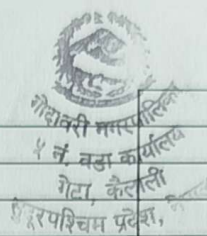 गोदावरी नगरपालिका
५ नं. वडा कार्यालय
गेटा, कैलाली
सुदूरपश्चिम प्रदेश,